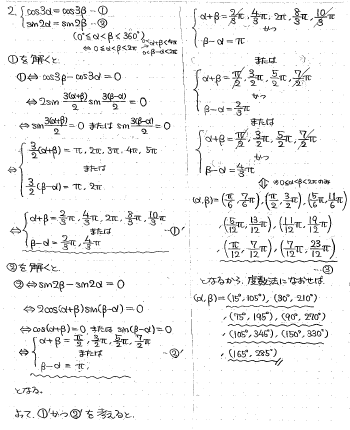 2. { cos3α = cos3β …①
sin2α = sin2β …②
(0°≤α<β<360°)
⇔ 0≤α<β<2π
0<α+β<4π
0<β-α<2π
①を解くと、
①⇔ cos3β - cos3α = 0
⇔ 2sin 3(α+β)/2 sin 3(β-α)/2 = 0
⇔ sin 3(α+β)/2 = 0 または sin 3(β-α)/2 = 0
⇔ { 3/2(α+β) = π, 2π, 3π, 4π, 5π
または
3/2(β-α) = π, 2π
⇔ { α+β = 2/3π, 4/3π, 2π, 8/3π, 10/3π
または
β-α = 2/3π, 4/3π …①'
②を解くと、
②⇔ sin2β - sin2α = 0
⇔ 2cos(α+β)sin(β-α) = 0
⇔ cos(α+β) = 0, または sin(β-α) = 0
⇔ { α+β = π/2, 3/2π, 5/2π, 7/2π
または
β-α = π, …②'
となる。
よって、①'かつ②'を考えると、
{ α+β = 2/3π, 4/3π, 2π, 8/3π, 10/3π
かつ
β-α = π
または
{ α+β = π/2, 3/2π, 5/2π, 7/2π
かつ
β-α = 2/3π
または
{ α+β = π/2, 3/2π, 5/2π, 7/2π
かつ
β-α = 4/3π
⇕ 0≤α<β<2πのみ
(α,β) = (π/6, 7/6π), (π/2, 3/2π), (5/6π, 11/6π)
, (5/12π, 13/12π), (11/12π, 19/12π)
, (π/12, 17/12π), (7/12π, 23/12π)
…③
となるから、度数法になおせば、
(α,β) = (15°, 105°), (30°, 210°)
, (75°, 195°), (90°, 270°)
, (105°, 345°), (150°, 330°)
, (165°, 285°)